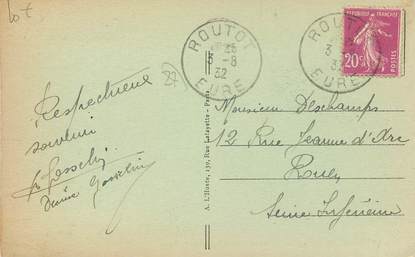 lot
ROUTOT
3 - 8
32
EURE
ROUTOT
3
32
EURE
RÉPUBLIQUE FRANÇAISE
20c
POSTES
Respectueux
souvenir
Gosselin
Gosselin
A. L'Hoste, 139, Rue Lafayette - Paris
Monsieur Deschamps
12 Rue Jeanne d'Arc
Rouen
Seine Inférieure